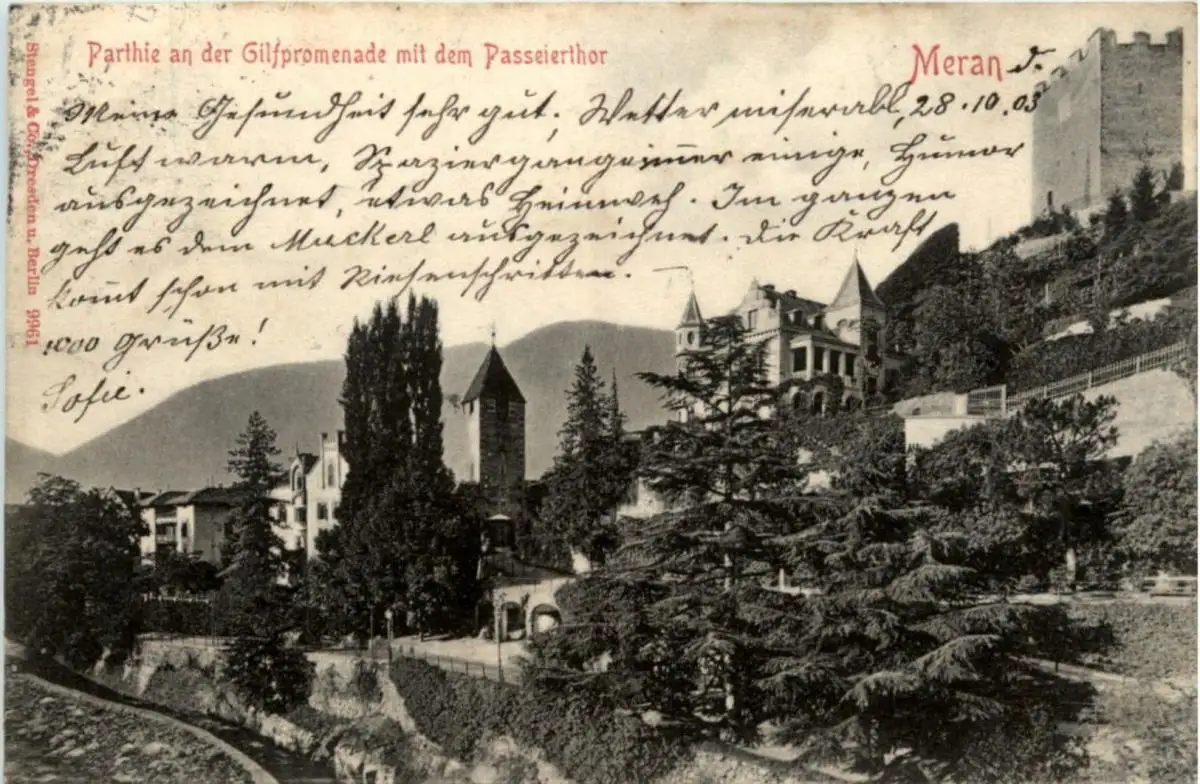 Parthie an der Gilfpromenade mit dem Passeierthor
Meran
Stengel & Co., Dresden u. Berlin 9961
Meine Gesundheit sehr gut. Wetter miserabl, 28.10.03
Luft warm, Spaziergänge immer einige, Humor
ausgezeichnet, etwas Heimweh. Im ganzen
geht es dem Muckerl ausgezeichnet. Die Kraft
kom̄t schon mit Riesenschritten.
1000 Grüße!
Sofie.